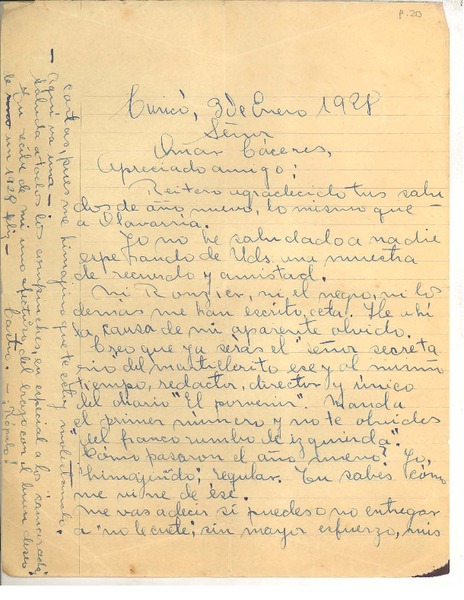 p. 20
Curicó, 3 de Enero 1928
Señor
Omar Cáceres,
Apreciado amigo:
Reitero agradecido tus salu
dos de año nuevo, lo mismo que
a Olavarría.
Yo no he saludado a nadie
esperando de Uds. una muestra
de recuerdo y amistad.
Ni Rongier, ni el negro, ni los
demás me han escrito, ceta. He ahí
la causa de mi aparente olvido.
Creo que ya serás el "señor secreta
rio" del martillerito ese y al mismo
tiempo, redactor, director y único
del diario "El porvenir". Manda
el primer número y no te olvides
"del franco rumbo de izquierda".
Cómo pasaron el año nuevo? Yo,
"himajando", regular. Tu sabes cómo
me vine de ése.
Me vas a decir si puedes o no entregar
a "no le crete"; sin mayor esfuerzo, mis
cartas, pues me himagino que te estoy molestando.
— Aquí va una —
Saluda a todos los compinches, en especial a los
Tu recibe de mi una afectuoso, del brazo con el buen deseo
de un 1928 feliz —
Castro. —